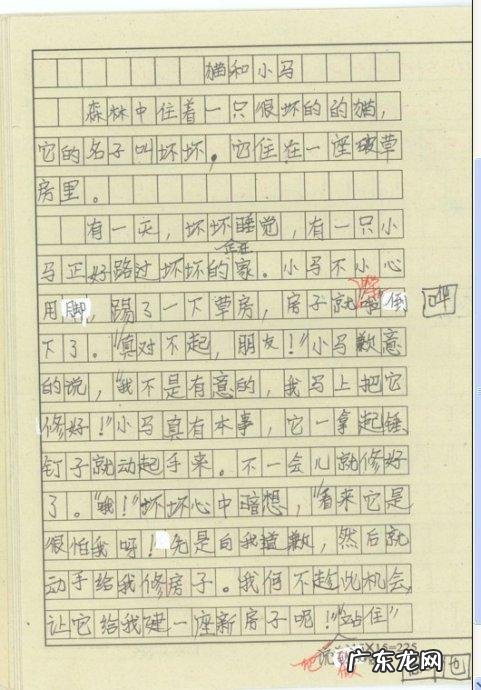 猫和小马
森林中住着一只很坏的的猫，
它的名子叫坏坏．它住在一座破草
房里。
有一天，坏坏睡觉，有一只小
正在
马正好路过坏坏的家。小马不小心
用脚踢了一下草房，房子就倒
哗
下了。“真对不起，朋友！”小马歉意
的说，“我不是有意的，我马上把它
修好！”小马真有本事，它一拿起锤
钉子就动起手来。不一会儿就修好
了。“哦！”坏坏心中暗想，“看来它是
很怕我呀！先是向我道歉，然后就
动手给我修房子。我何不趁此机会
让它给我建一座新房子呢！”“站住”
15×15=225
广东龙网